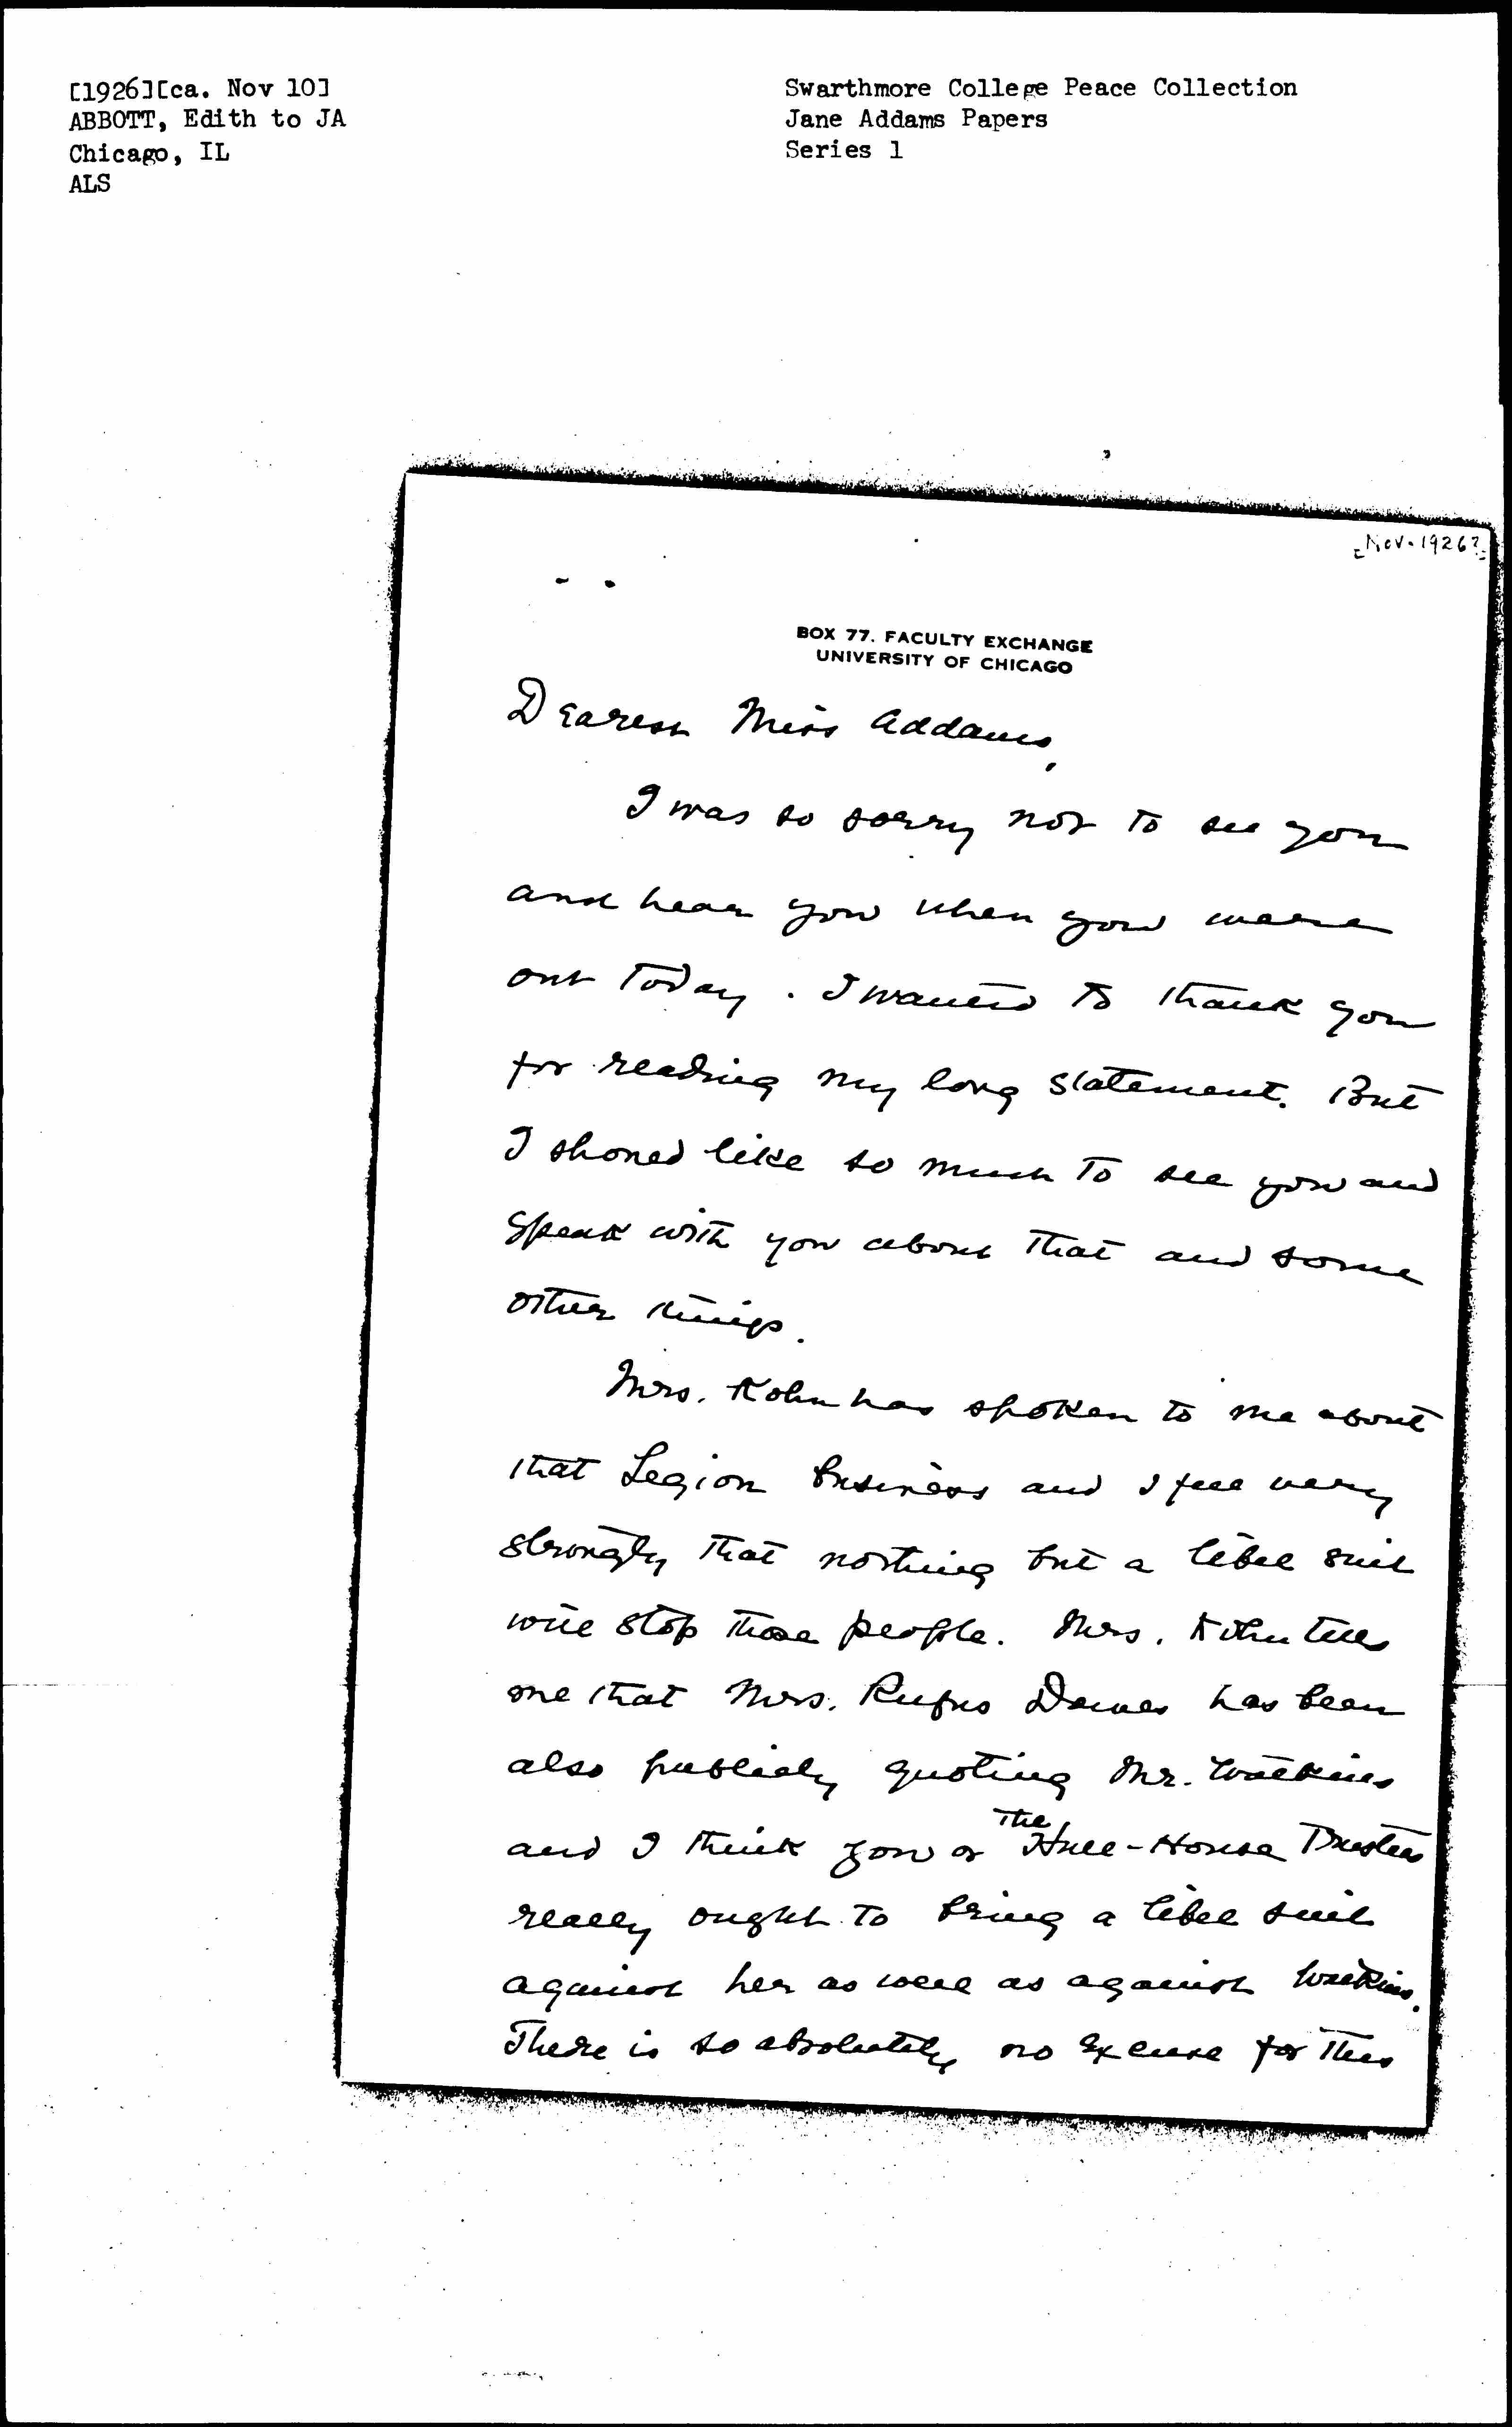 [1926][ca. Nov 10]
ABBOTT, Edith to JA
Chicago, IL
ALS
Swarthmore College Peace Collection
Jane Addams Papers
Series 1
[Nov. 1926?]
BOX 77. FACULTY EXCHANGE
UNIVERSITY OF CHICAGO
Dearest Miss Addams,
I was so sorry not to see you
and hear you when you were
out today. I wanted to thank you
for reading my long statement. But
I should like so much to see you and
speak with you about that and some
other things.
Mrs. Kohn has spoken to me about
that Legion business and I feel very
strongly that nothing but a libel suit
will stop those people. Mrs. Kohn tells
me that Mrs. Rufus Dawes has been
also publicly quoting Mr. Watkins
and I think you or the Hull-House Trustees
really ought to bring a libel suit
against her as well as against Watkins.
There is so absolutely no excuse for this